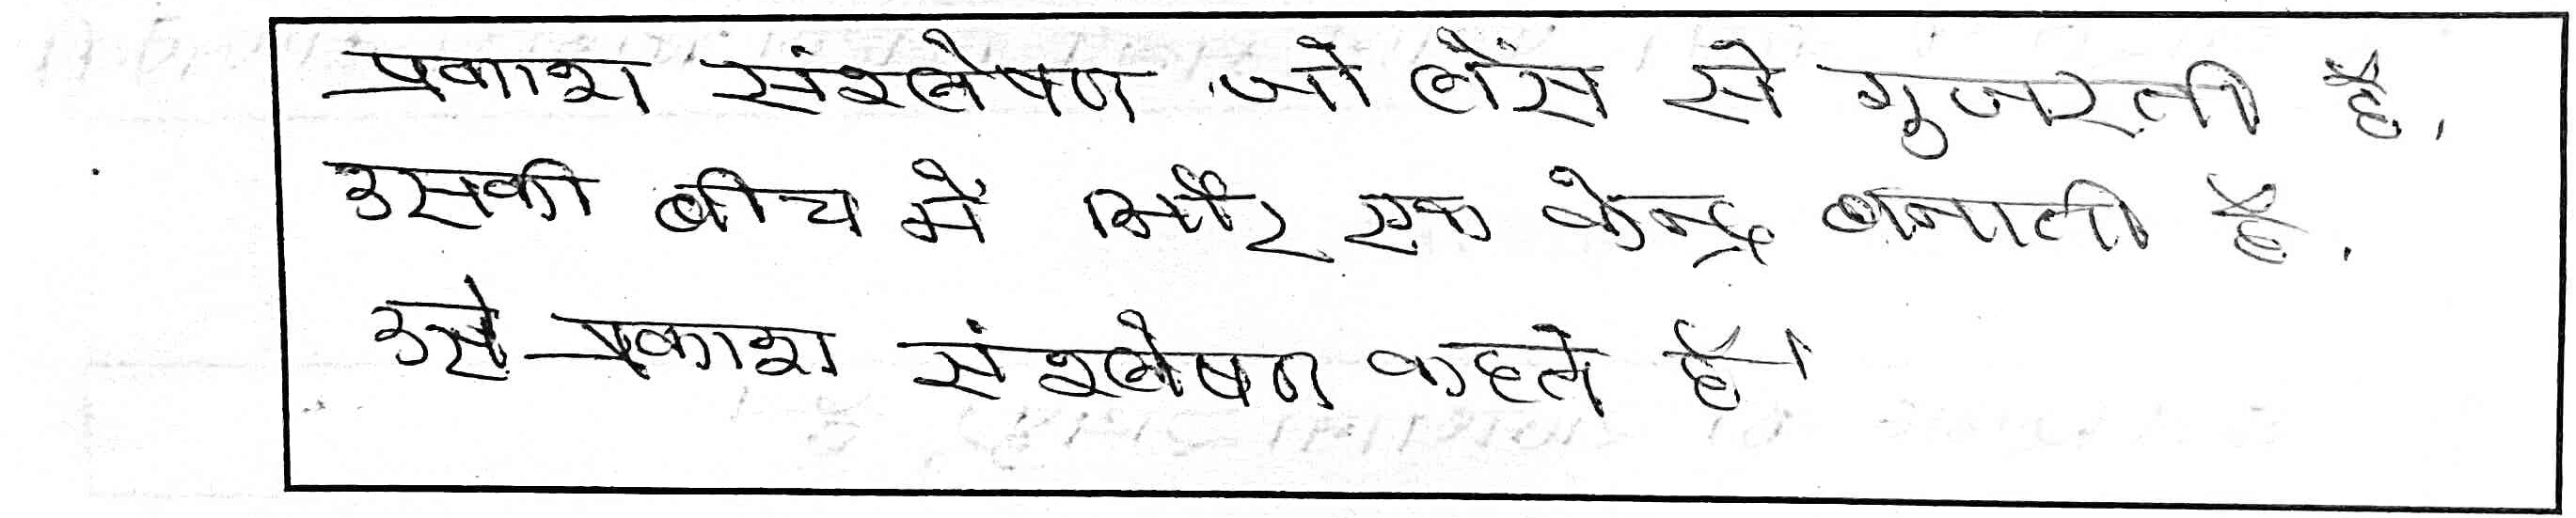 प्रकाश संश्लेषण जो लेंस से गुजरती है,
उसकी बीच में और एक केन्द्र बनाती है,
उसे प्रकाश संश्लेषण कहते हैं।